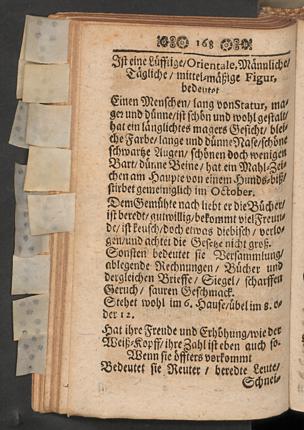 168
Ist eine Lüfftige/ Orientale, Männliche/
Tägliche/ mittel-mäßige Figur,
bedeutet
Einen Menschen/ lang von Statur, ma-
ger und dünne/ ist schön und wohl gestalt/
hat ein länglichtes magers Gesicht/ blei-
che Farbe/ lange und dünne Nase/ schöne
schwartze Augen/ schönen doch wenigen
Bart/ dünne Beine/ hat ein Mahl-Zei-
chen am Haupte von einem Hunds-biß/
stirbet gemeiniglich im October.
Dem Gemühte nach liebt er die Bücher/
ist beredt/ gutwillig/ bekommt viel Freun-
de/ ist keusch/ doch etwas diebisch/ verlo-
gen/ und achtet die Gesetze nicht groß.
Sonsten bedeutet sie Versammlung/
ablegende Rechnungen/ Bücher und
dergleichen Brieffe/ Siegel/ scharffen
Geruch/ sauren Geschmack.
Stehet wohl im 6. Hause/ übel im 8. o-
der 12.
Hat ihre Freude und Erhöhung/ wie der
Weiß-Kopff/ ihre Zahl ist eben auch so.
Wenn sie öffters vorkommt
Bedeutet sie Reuter/ beredte Leute/
Schnei-